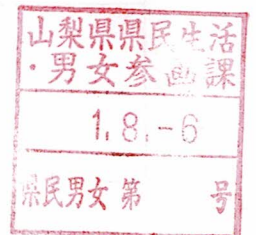 山梨県県民生活
・男女参画課
1.8.-6
県民男女 第　　号